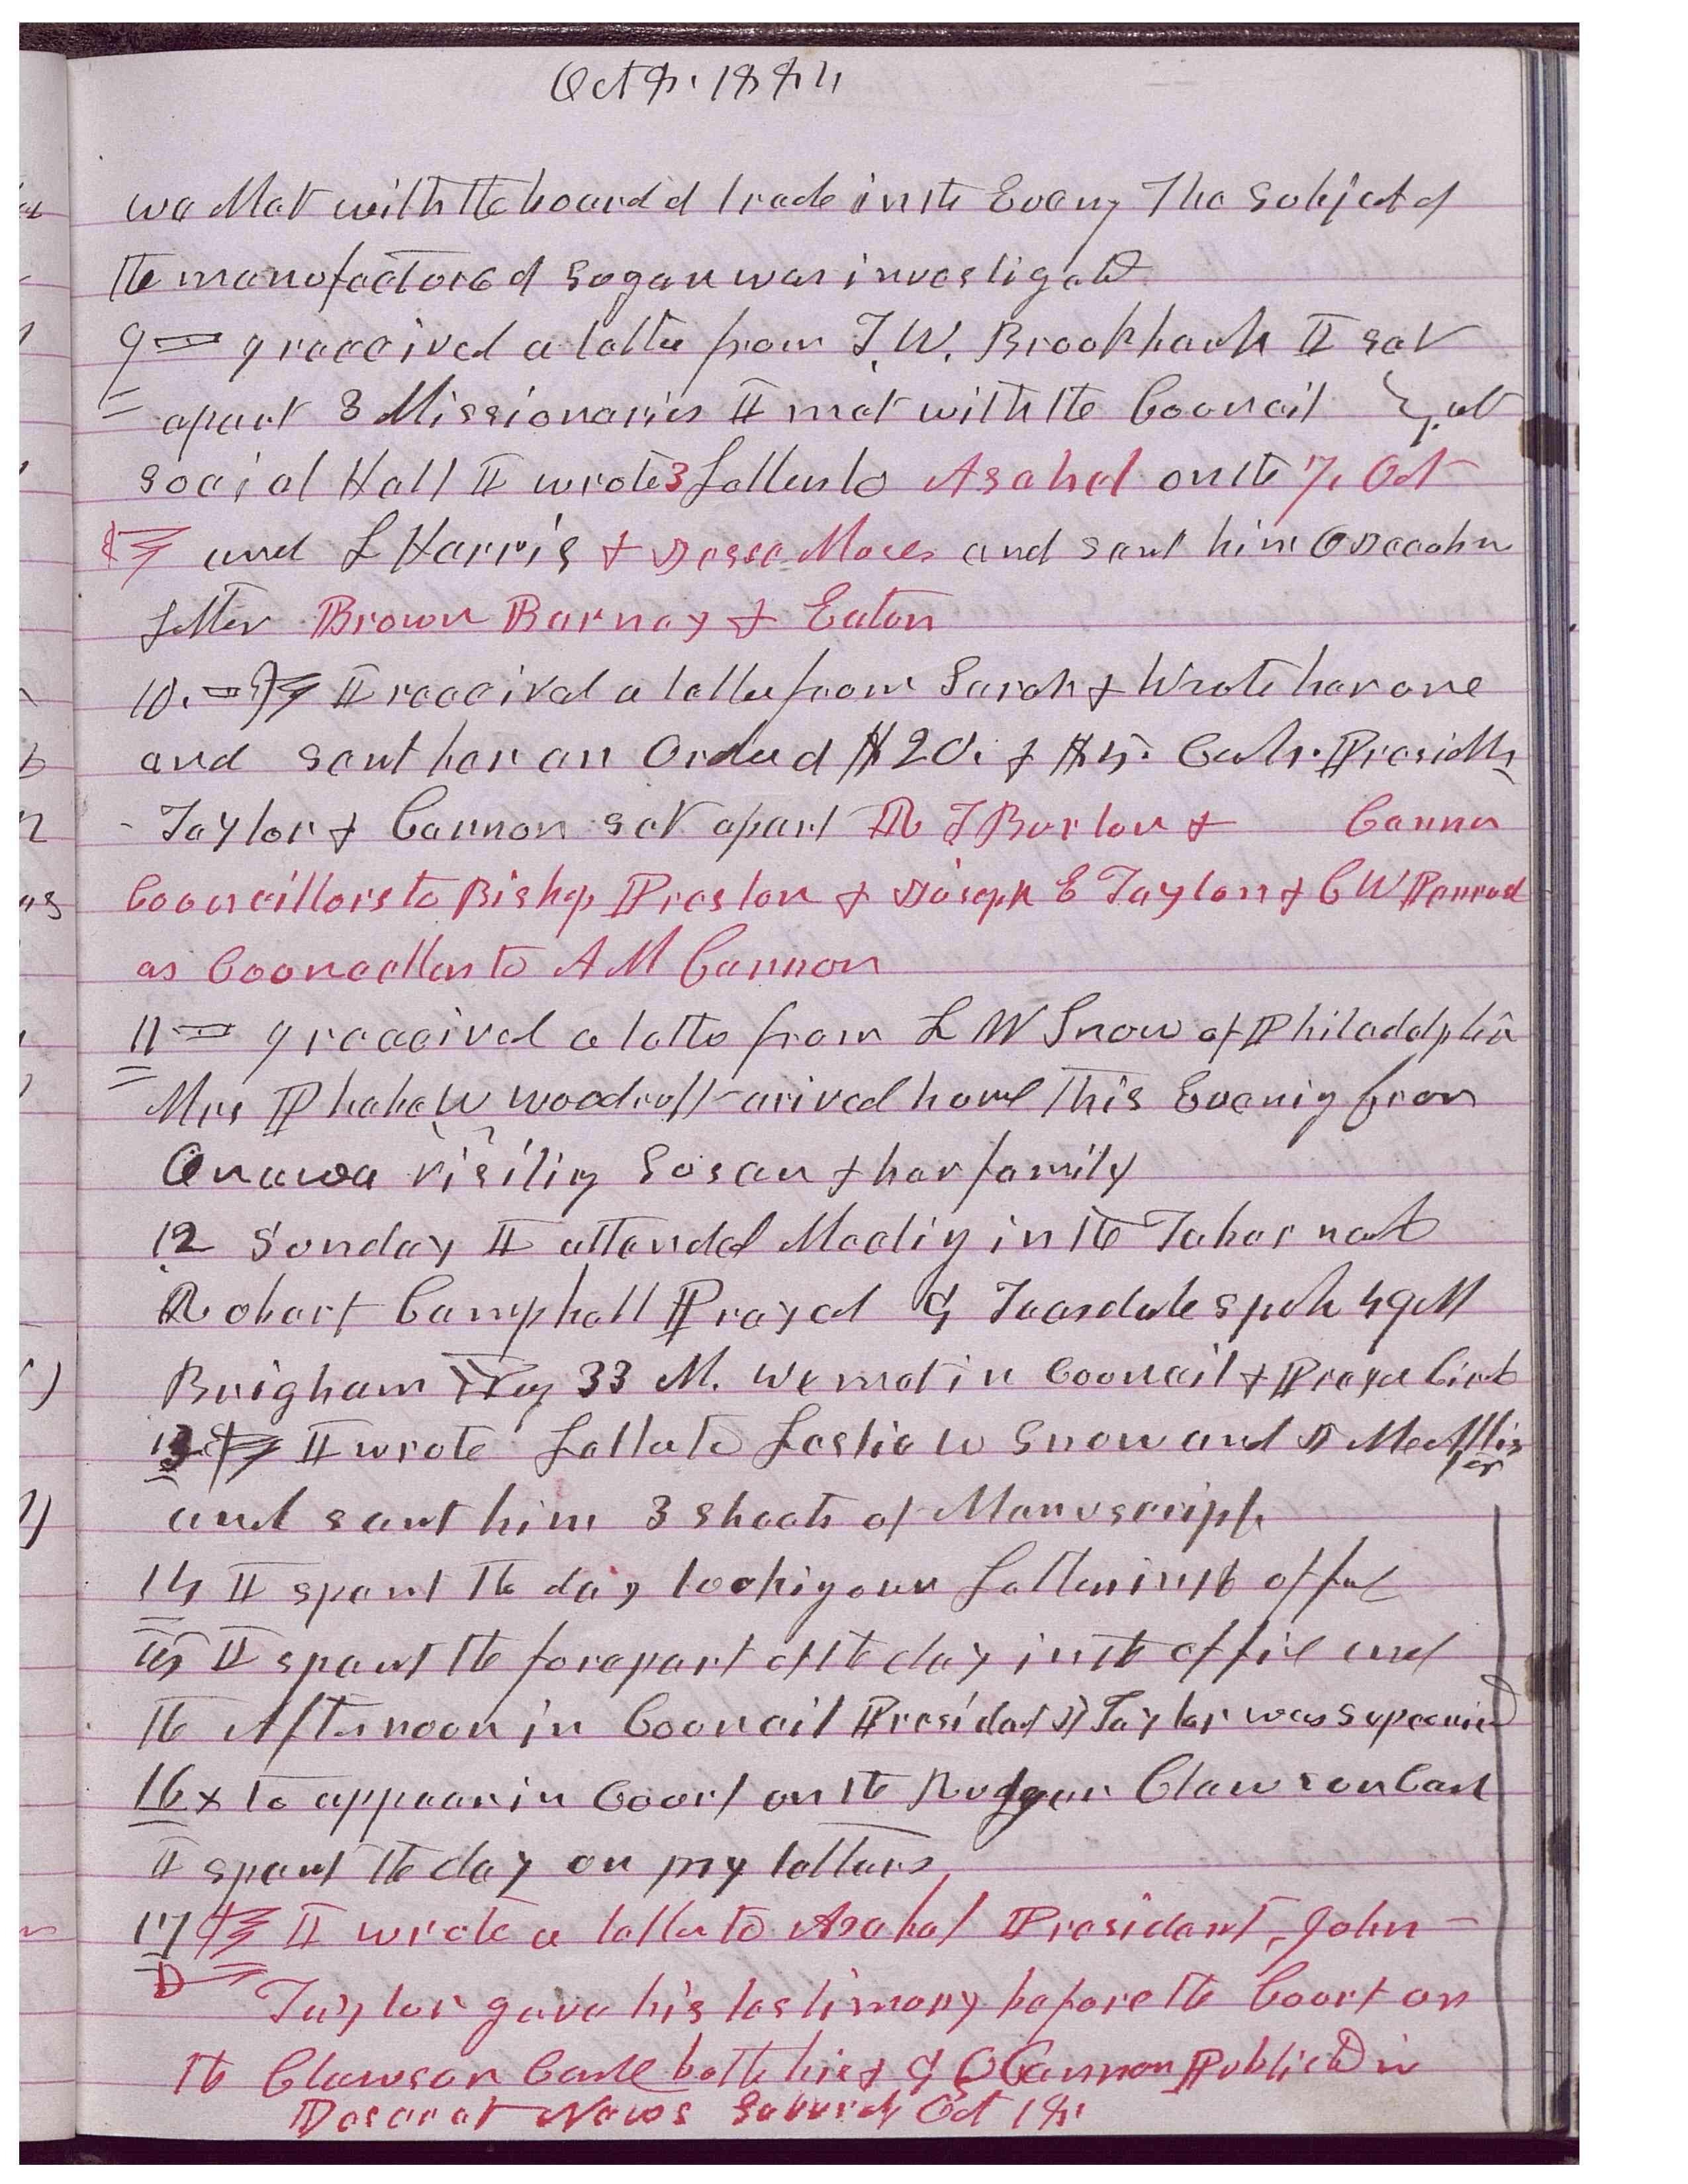 Oct 8. 1884
we Met with the board of trade in the Evening The subject of
the manufactore of sugar was investigated
9 I received a letter from J. W. Brookbank I set
apart 3 Missionaries I met with the Council at
social Hall I wrote 3 Letters to Asahel on the 7, Oct
and L Harris & Jesse Moses and sent him
Letter Brown Barney & Eaton
10. I received a letter from Sarah & Wrote her one
and sent her an Order of $20. & $5. Cash. Presidts
Taylor & Cannon set apart R T Burton & Cannon
Councillors to Bishop Preston & Joseph E Taylor & C W Penrose
as Councellors to A M Cannon
11 I received a letter from L W Snow of Philadelphia
Mrs Phebe W Woodruff arived home This Evenig from
Onawa visiting Susan & her family
12 Sunday I attended Meetig in the Tabernacle
Robert Campbell Prayed G Teasdale spoke 49 M
Brigham Young 33 M. We met in Council & Prayer Circle
13 I wrote Letter to Leslie W Snow and J McAllister
and sent him 3 sheets of Manuscript.
14 I spent the day looking over Letters in the office
15 I spent the forepart of the day in the office and
the Afternoon in Council Presidet J Taylor was supoenied
16 x to appear in Court on the Rudger Clawson Case
I spent the day on my letters
17 I wrote a letter to Asahel President John
Taylor gave his testimony before the Court on
the Clawson Case both his & G Q Cannon Publiced in
Deseret News Saturdy Oct 18.